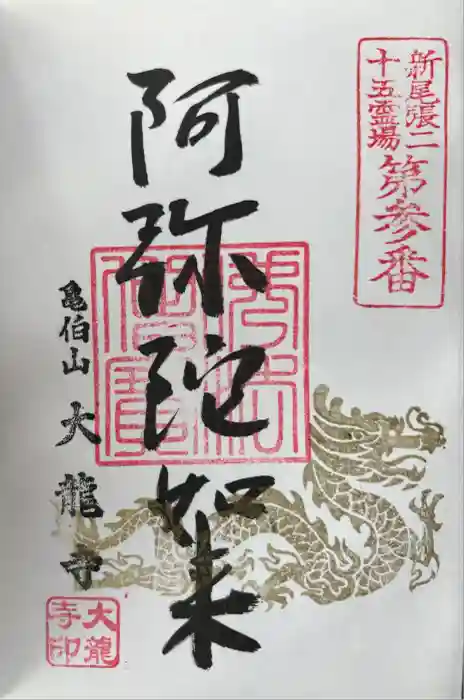 新尾張二
十五霊場
第参番
阿弥陀如来
佛法
僧寶
亀伯山 大龍寺
大龍
寺印